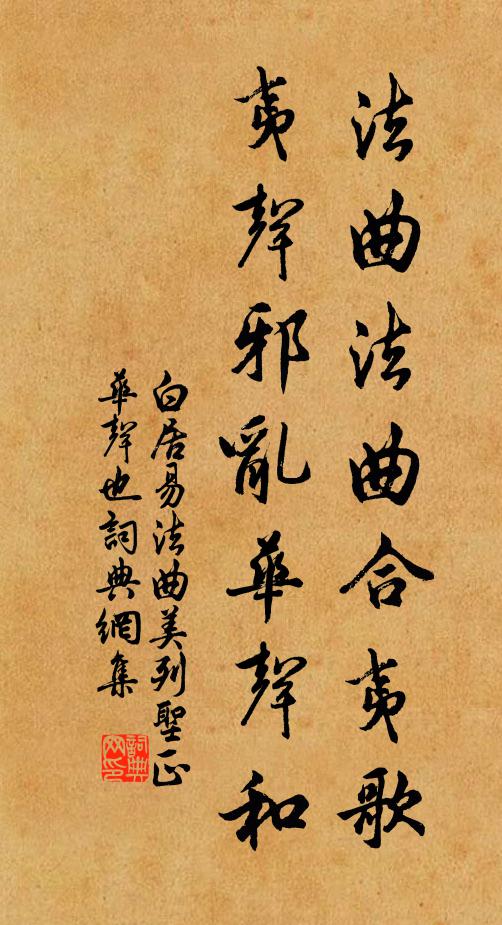 法曲法曲合夷歌
夷聲邪亂華聲和
白居易法曲美列聖正
華聲也詞典網集
詞典網印